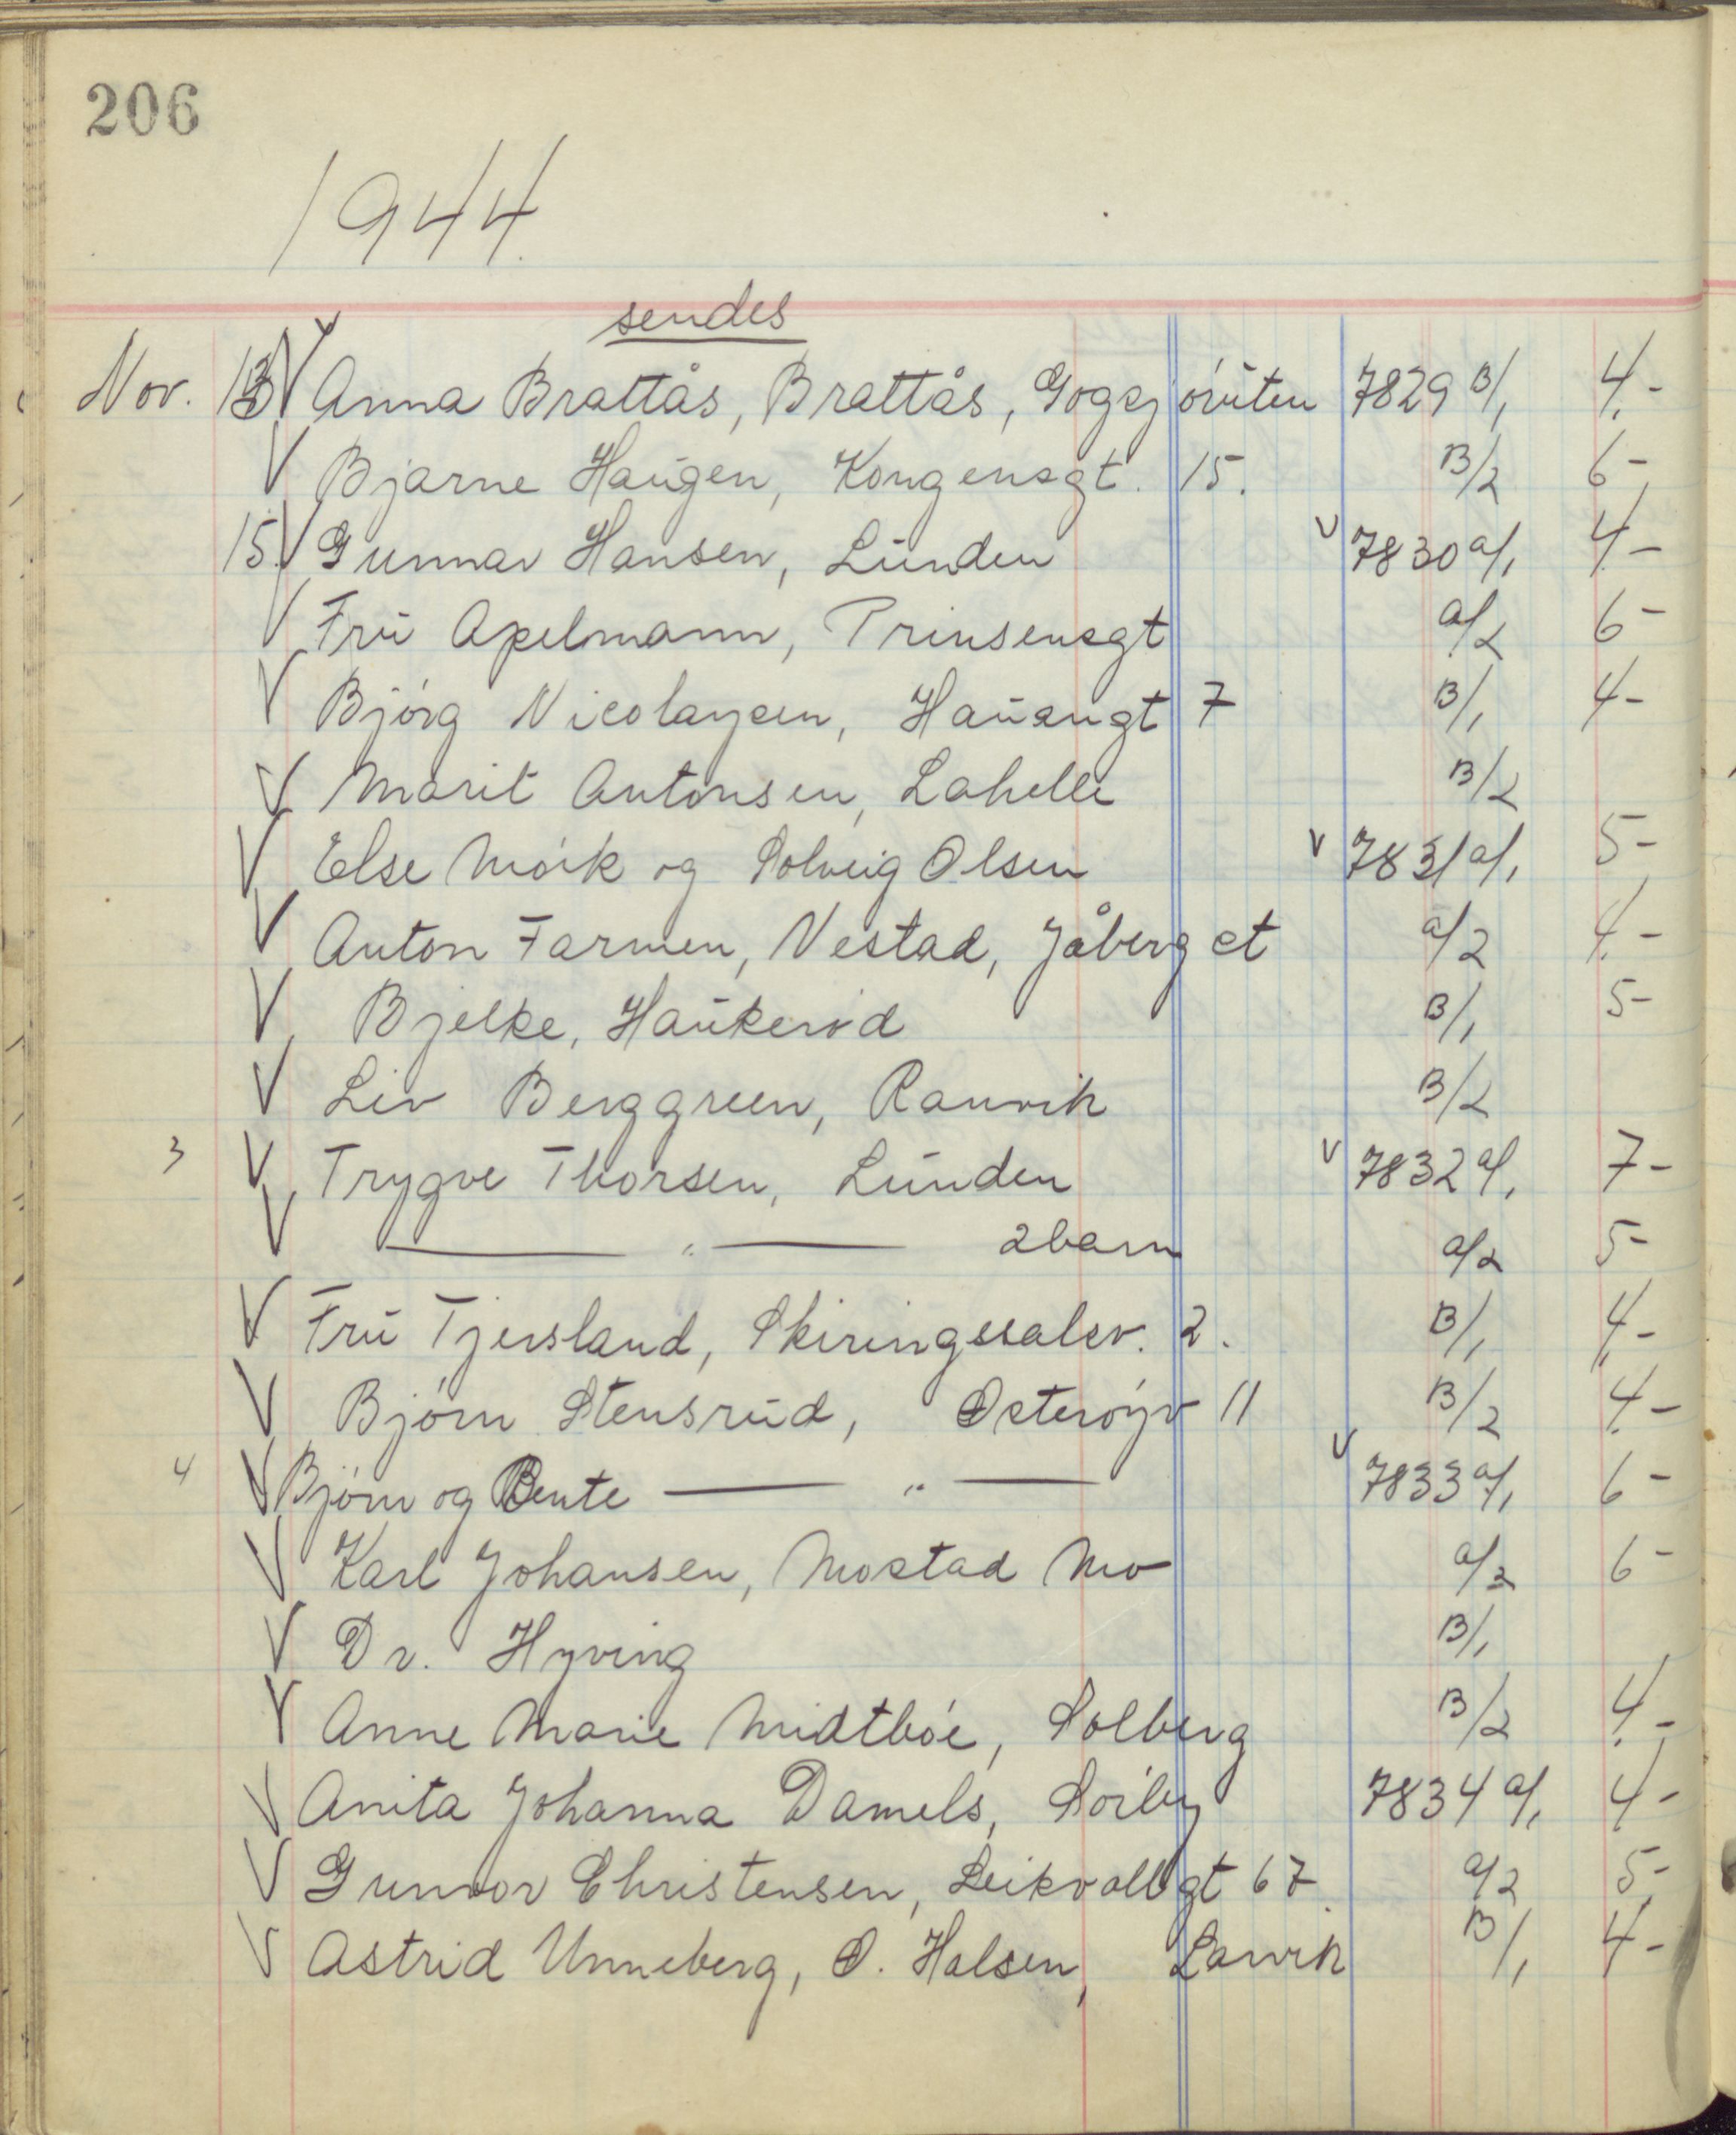 206
1944.
sendes
Nov. 13 V Anna Brattås, Brattås, Gogsjøruten 7829 B/1 4.-
V Bjarne Haugen, Kongensgt. 15. B/2 6-
15. V Gunnar Hansen, Lunden V 7830 a/1 4-
V Fru Apelmann, Prinsensgt a/2 6-
V Bjørg Nicolaysen, Hauangt 7 B/1 4-
V Marit Antonsen, Lahelle B/2
V Else Mørk og Solveig Olsen V 7831 a/1 5-
V Anton Farmen, Vestad, Jåberg st a/2 4-
V Bjelke, Haukerød B/1 5-
V Liv Berggreen, Ranvik B/2
3 V Trygve Thorsen, Lunden V 7832 a/1 7-
V — " — 2 barn a/2 5-
V Fru Tjersland, Skiringssalsv. 2. B/1 4-
V Bjørn Stensrud, Østerøyv 11 B/2 4-
4 V Bjørn og Bente — " — V 7833 a/1 6-
V Karl Johansen, Mostad Mo a/2 6-
V Dr. Hyving B/1
V Anne Marie Midtbøe, Solberg B/2 4-
V Anita Johanna Damels, Sørby 7834 a/1 4-
V Gunvor Christensen, Leikvollgt 67. a/2 5-
V Astrid Unneberg, Ø. Halsen, Larvik B/1 4-